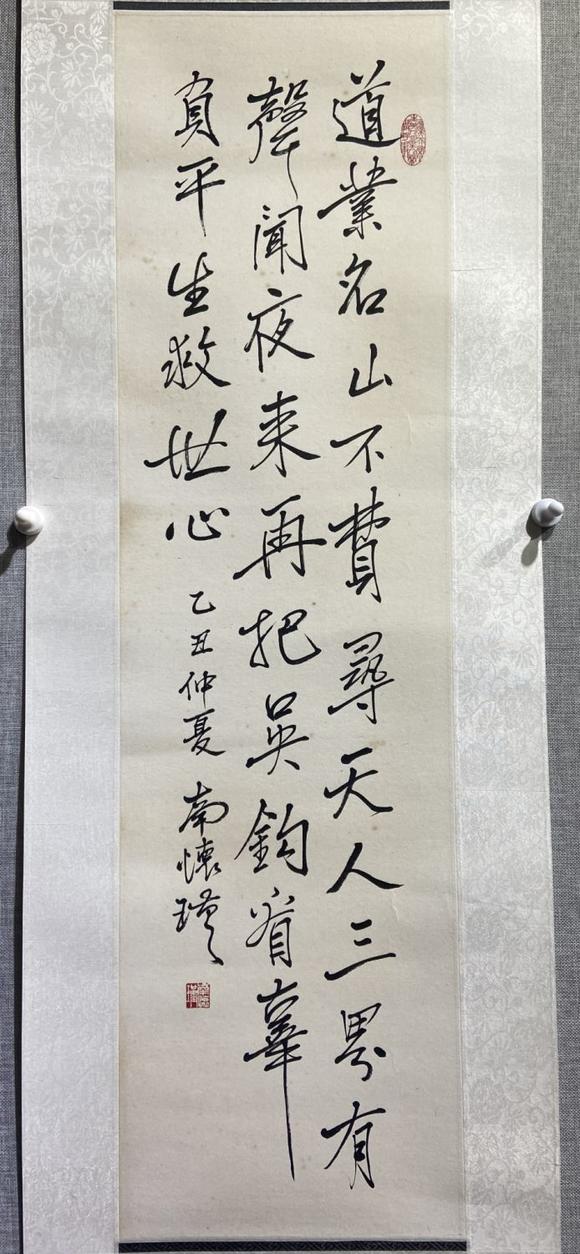 道業名山不費尋天人三界有
聲聞夜来再把吳鈎看辜
負平生救世心
乙丑仲夏 南懷瑾